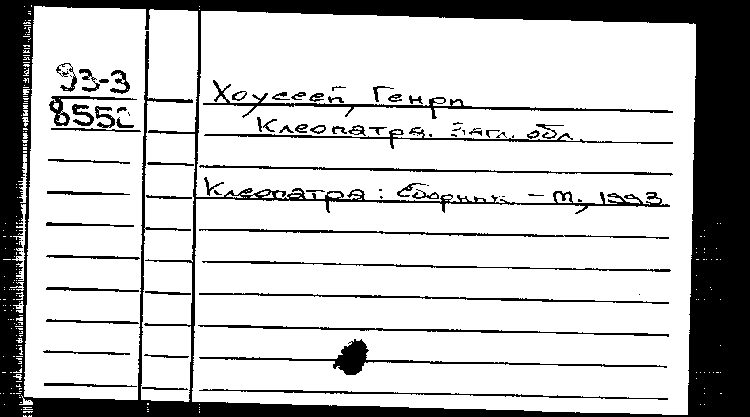 93-3
855
Хоуссей, Генри
Клеопатра. Загл. обл.
Клеопатра : Сборник – М., 1993